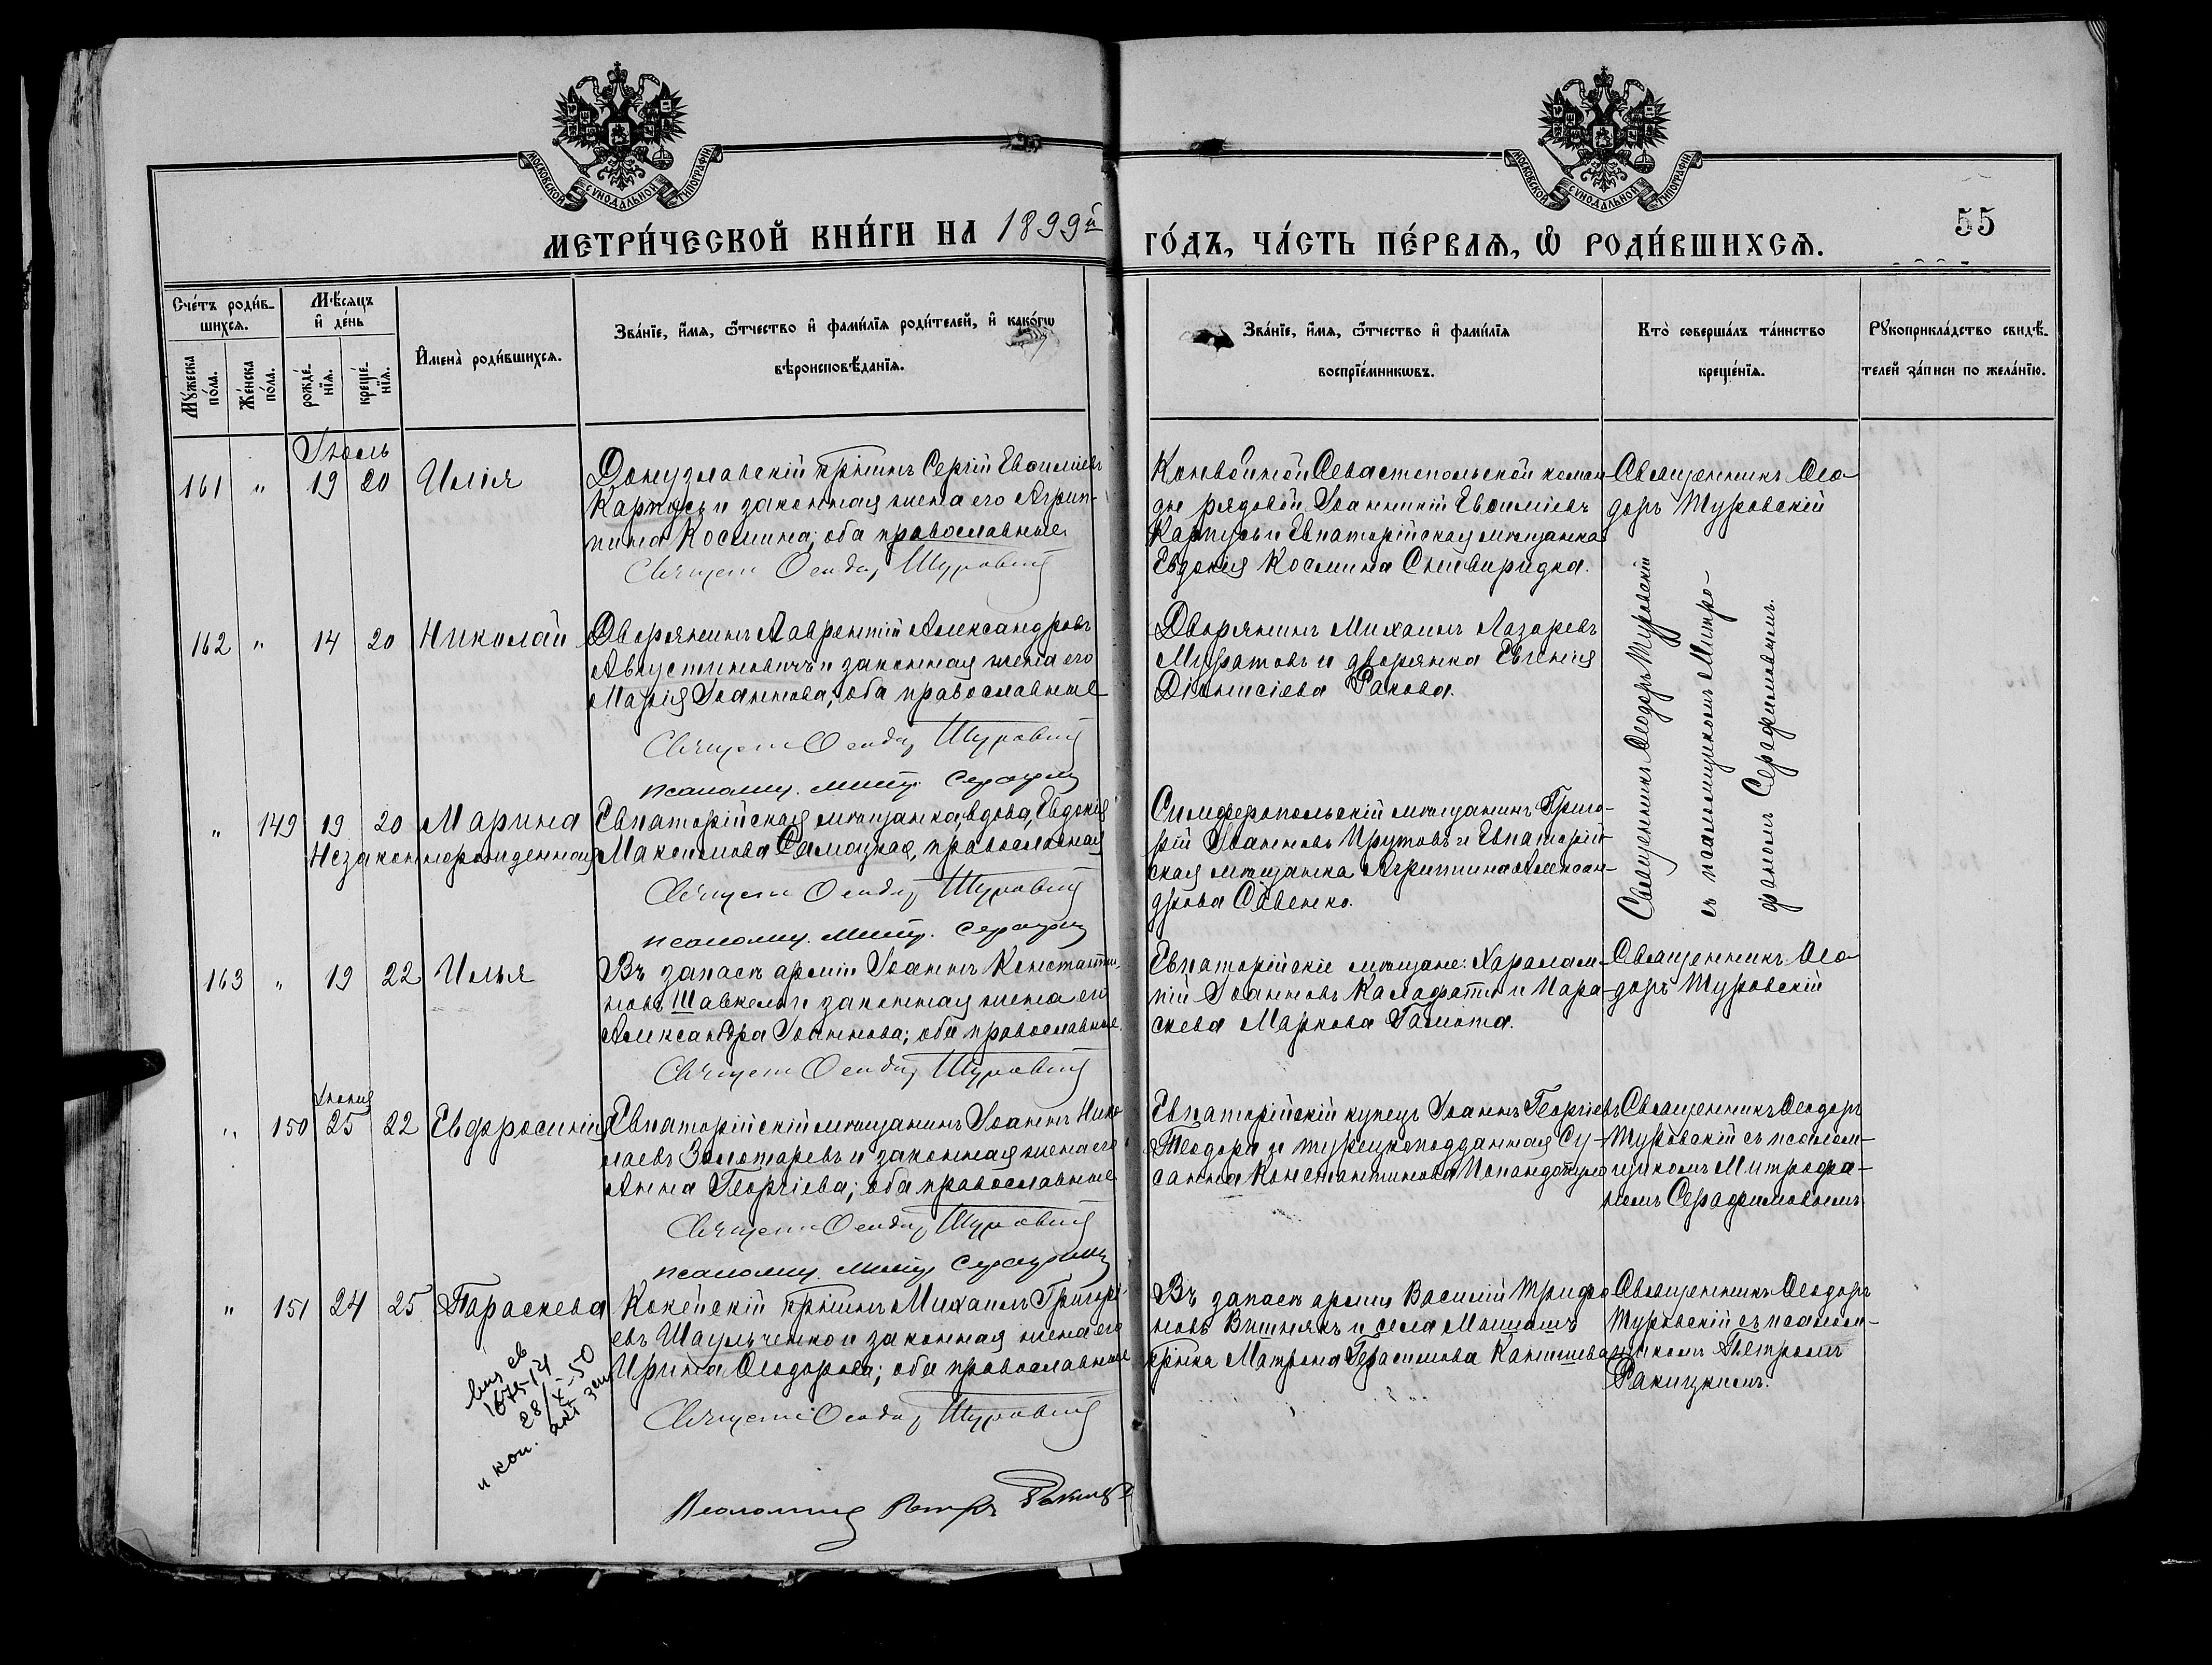 МОСКОВСКОЙ СѴНОДАЛЬНОЙ ТИПОГРАФІИ
МОСКОВСКОЙ СѴНОДАЛЬНОЙ ТИПОГРАФІИ
55
МЕТРИ́ЧЕСКОЙ КНИ́ГИ НА 1899й ГО́ДЪ, ЧА́СТЬ ПЕ́РВАѦ, Ѡ РОДИ́ВШИХСѦ.
Сче́тъ роди́в-
шихсѧ.
Мꙋ́жеска по́ла.
Же́нска по́ла.
Мѣ́сѧцъ
и де́нь
рожде́-
нїѧ.
креще́-
нїѧ.
Имена̀ роди́вшихсѧ.
Зва́нїе, и́мѧ, ѻ́тчество и фами́лїѧ роди́телей, и како́гѡ
вѣроисповѣ́данїѧ.
Зва́нїе, и́мѧ, ѻ́тчество и фами́лїѧ
воспрїе́мникѡвъ.
Кто̀ соверша́лъ та́инство
креще́нїѧ.
Рꙋкоприкла́дство свидѣ́-
телей за́писи по жела́нїю.
Іюль
161 " 19 20 Илія
Донузлавскій кр-нинъ Сергій Евѳиміевъ
Карпусь и законная жена его Агрип-
пина Космина; оба православные
Священ Ѳеодор Туровский
Конвойной Севастопольской коман-
ды рядовой Іоанникій Евѳиміевъ
Карпусь и Евпаторійская мѣщанка
Евдокія Космина Спивиридка.
Священникъ Ѳео-
доръ Туровскій
162 " 14 20 Николай
Дворянинъ Лаврентій Александровъ
Августиновичъ и законная жена его
Марія Іоаннова, оба православные
Священ Ѳеодор Туровский
псаломщ. Митр. Серафим
Дворянинъ Михаилъ Лазаревъ
Муратовъ и дворянка Евгенія
Діонисіева Ракова.
Священникъ Ѳеодоръ Туровскій
съ псаломщикомъ Митро-
фаномъ Серафимовымъ.
" 149 19 20 Марина
Незаконнорожденная
Евпаторійская мѣщанка, вдова, Евдокія
Максимова Самацкая, православная
Священ Ѳеодор Туровский
псаломщ. Митр. Серафим
Симферопольскій мѣщанинъ Григо-
рій Іоанновъ Прутовъ и Евпаторій-
ская мѣщанка Агриппина Алексан-
дрова Савенко.
163 " 19 22 Илья
Въ запасѣ арміи Іоаннъ Константи-
новъ Шавкелъ и законная жена его
Александра Іоаннова; оба православные.
Священ Ѳеодор Туровский
Евпаторійскіе мѣщане: Харалам-
пій Іоанновъ Калафати и Пара-
скева Маркова Гамота.
Священникъ Ѳео-
доръ Туровскій
Іюня
" 150 25 22 Евфросинія
Евпаторійскій мѣщанинъ Іоаннъ Нико-
лаевъ Золотаревъ и законная жена его
Анна Георгіева; оба православные
Священ Ѳеодор Туровский
псаломщ. Митр. Серафим
Евпаторійскій купецъ Іоаннъ Георгіевъ
Теодори и турецкоподданная Су-
санна Константинова Попандопуло
Священникъ Ѳеодоръ
Туровскій съ псалом-
щикомъ Митрофа-
номъ Серафимовымъ.
" 151 24 25 Параскева
Кокейскій кр-нинъ Михаилъ Григорь-
евъ Шаульченко и законная жена его
Ирина Ѳеодорова; оба православные
Священ Ѳеодор Туровский
Псаломщ Петръ Ракицкий
Въ запасѣ арміи Василій Трифо-
новъ Вишнякъ и села
кр-нка Матрона Герасимова Канишева
Священникъ Ѳеодоръ
Туровскій съ псалом-
щикомъ Петромъ
Ракицкимъ.
св
28/X-50
и коп. акт зап